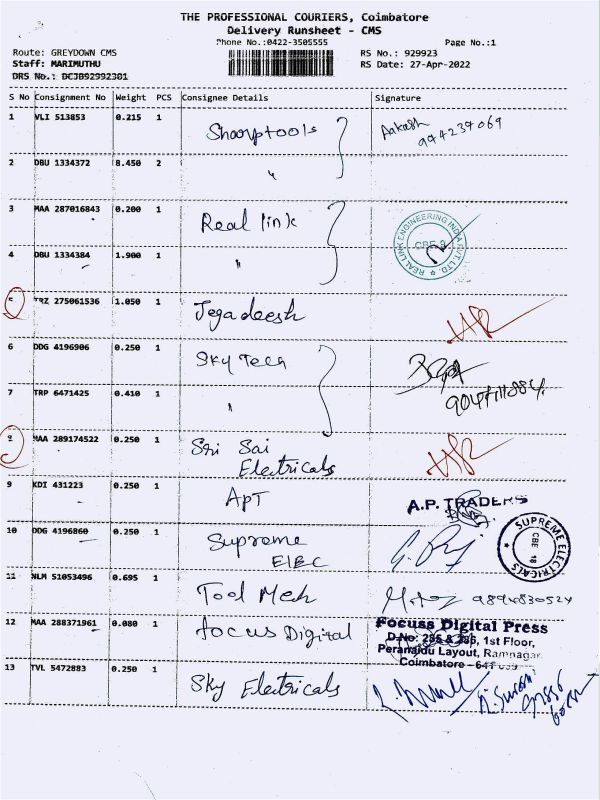 THE PROFESSIONAL COURIERS, Coimbatore
Delivery Runsheet - CMS
Phone No.:0422-3505555 Page No.:1
Route: GREYDOWN CMS RS No.: 929923
Staff: MARIMUTHU RS Date: 27-Apr-2022
DRS No.: DCJB92992301
S No Consignment No Weight PCS Consignee Details Signature
1 VLI 513853 0.215 1 Sharptools Aakash
2 DBU 1334372 8.450 2 "
3 MAA 287016843 0.200 1 Real link
REAL LINK ENGINEERING INDIA PVT. LTD
CBE 9
4 DBU 1334384 1.900 1 "
5 TRZ 275061536 1.050 1 Jegadeesh
6 DDG 4196906 0.250 1 Sky Tech
7 TRP 6471425 0.410 1 "
MAA 289174522 0.250 1 Sri Sai
Electricals
9 KDI 431223 0.250 1 APT A.P. TRADERS
10 DDG 4196860 0.250 1 Supreme
ElEC
SUPREME ELECTRICALS
CBE 18
11 NLM 51053496 0.695 1 Tool Mech 9894830524
12 MAA 288371961 0.080 1 focus Digital Focuss Digital Press
D.No: 285 & 286, 1st Floor,
Peranaidu Layout, Ramnagar
Coimbatore - 641
13 TVL 5472883 0.250 1 Sky Electricals